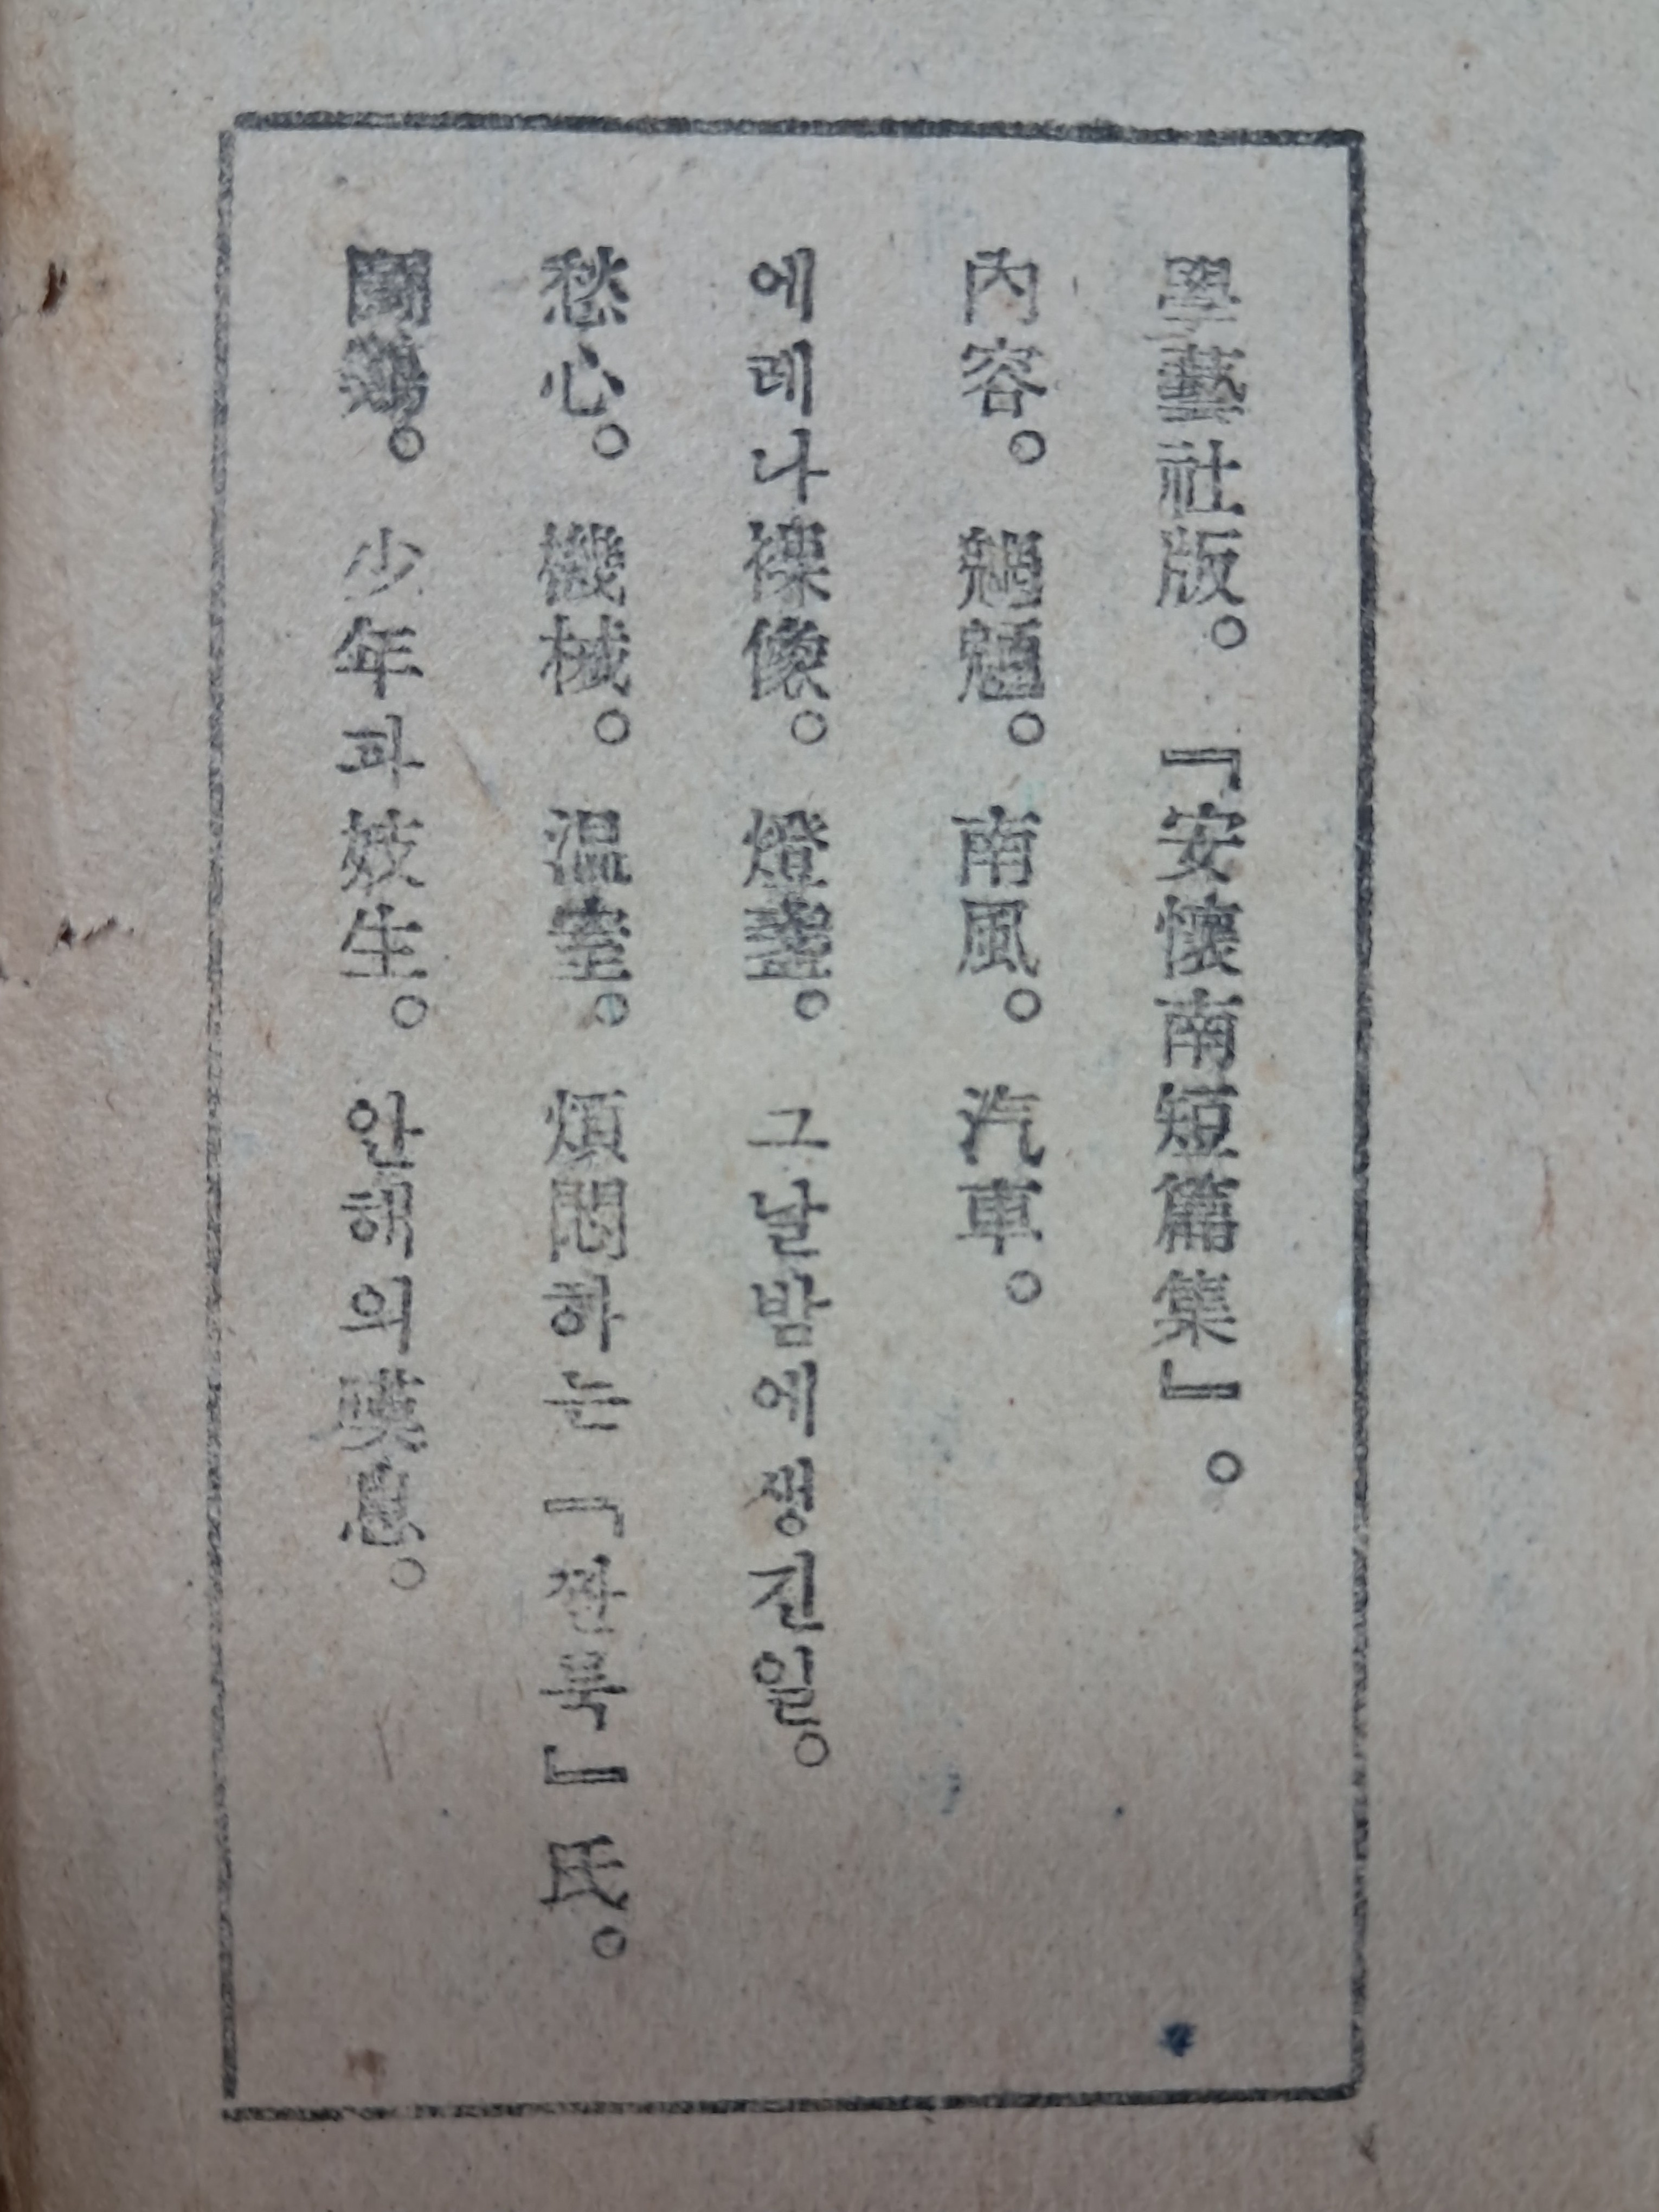 學藝社版。『安懷南短篇集』。
內容。魍魎。南風。汽車。
에레나裸像。燈盞。그날밤에생진일。
愁心。機械。溫室。煩悶하는『쟌룩』氏。
鬪鷄。少年과妓生。안해의嘆息。